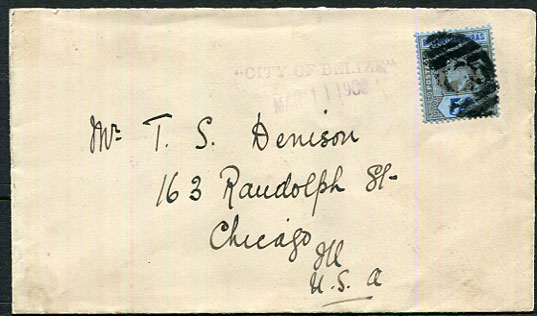 "CITY OF BELIZE"
MAR 11 1908
Mr T. S. Denison
163 Randolph St-
Chicago
Ill
U.S.A